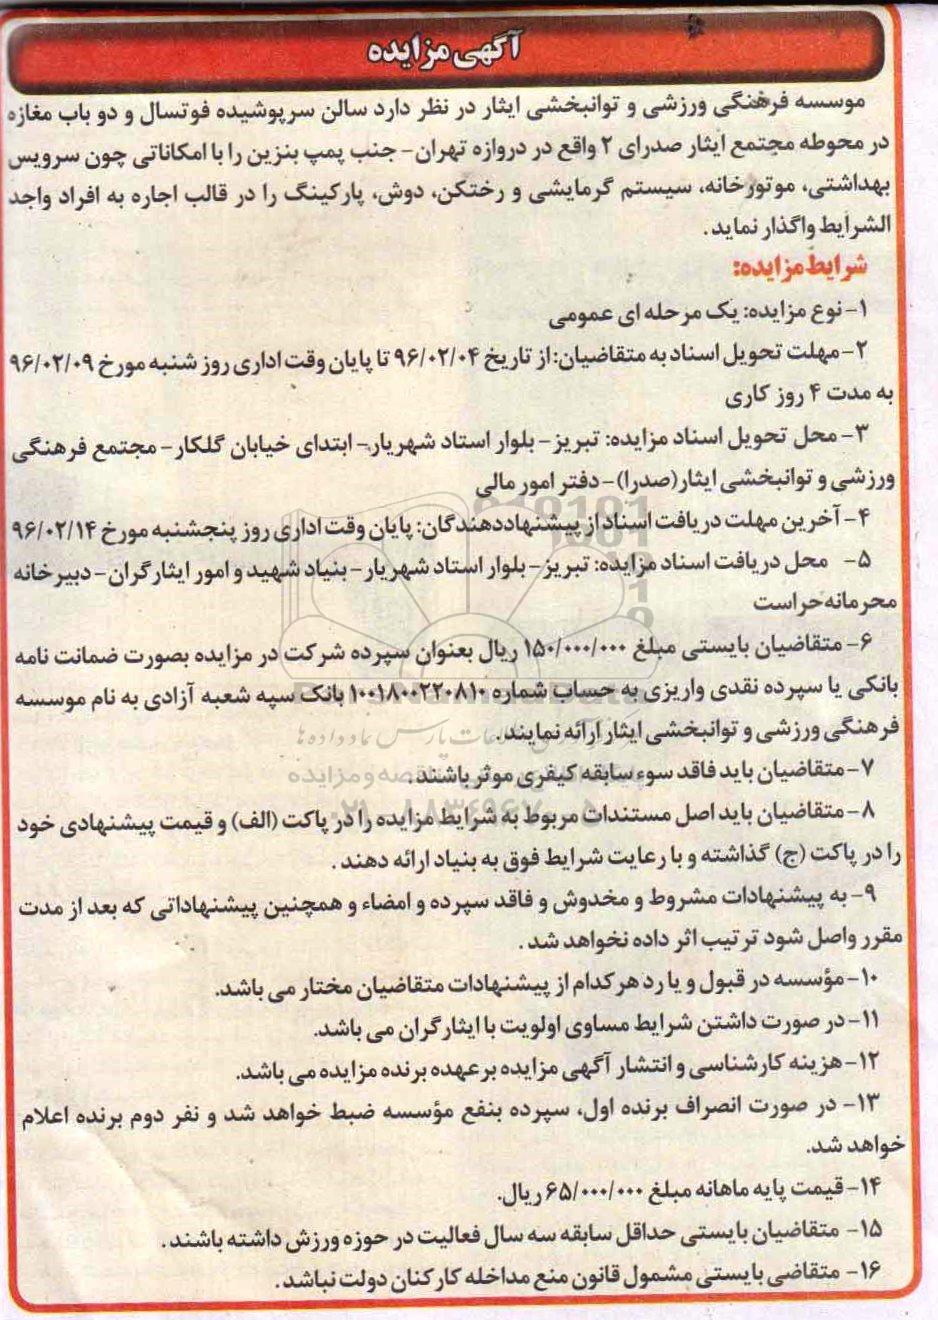 آگهی مزایده
موسسه فرهنگی ورزشی و توانبخشی ایثار در نظر دارد سالن سرپوشیده فوتسال و دو باب مغازه
در محوطه مجتمع ایثار صدرای ۲ واقع در دروازه تهران- جنب پمپ بنزین را با امکاناتی چون سرویس
بهداشتی، موتورخانه، سیستم گرمایشی و رختکن، دوش، پارکینگ را در قالب اجاره به افراد واجد
الشرایط واگذار نماید.
شرایط مزایده:
۱- نوع مزایده: یک مرحله ای عمومی
۲- مهلت تحویل اسناد به متقاضیان: از تاریخ ۹۶/۰۲/۰۴ تا پایان وقت اداری روز شنبه مورخ ۹۶/۰۲/۰۹
به مدت ۴ روز کاری
۳- محل تحویل اسناد مزایده: تبریز- بلوار استاد شهریار- ابتدای خیابان گلکار- مجتمع فرهنگی
ورزشی و توانبخشی ایثار(صدرا)- دفتر امور مالی
۴- آخرین مهلت دریافت اسناد از پیشنهاددهندگان: پایان وقت اداری روز پنجشنبه مورخ ۹۶/۰۲/۱۴
۵- محل دریافت اسناد مزایده: تبریز- بلوار استاد شهریار- بنیاد شهید و امور ایثارگران- دبیرخانه
محرمانه حراست
۶- متقاضیان بایستی مبلغ ۱۵۰/۰۰۰/۰۰۰ ریال بعنوان سپرده شرکت در مزایده بصورت ضمانت نامه
بانکی یا سپرده نقدی واریزی به حساب شماره ۱۰۰۱۸۰۰۲۲۰۸۱۰ بانک سپه شعبه آزادی به نام موسسه
فرهنگی ورزشی و توانبخشی ایثار ارائه نمایند.
۷- متقاضیان باید فاقد سوء سابقه کیفری موثر باشند.
۸- متقاضیان باید اصل مستندات مربوط به شرایط مزایده را در پاکت (الف) و قیمت پیشنهادی خود
را در پاکت (ج) گذاشته و با رعایت شرایط فوق به بنیاد ارائه دهند.
۹- به پیشنهادات مشروط و مخدوش و فاقد سپرده و امضاء و همچنین پیشنهاداتی که بعد از مدت
مقرر واصل شود ترتیب اثر داده نخواهد شد.
۱۰- مؤسسه در قبول و یا رد هر کدام از پیشنهادات متقاضیان مختار می باشد.
۱۱- در صورت داشتن شرایط مساوی اولویت با ایثارگران می باشد.
۱۲- هزینه کارشناسی و انتشار آگهی مزایده برعهده برنده مزایده می باشد.
۱۳- در صورت انصراف برنده اول، سپرده بنفع مؤسسه ضبط خواهد شد و نفر دوم برنده اعلام
خواهد شد.
۱۴- قیمت پایه ماهانه مبلغ ۶۵/۰۰۰/۰۰۰ ریال.
۱۵- متقاضیان بایستی حداقل سابقه سه سال فعالیت در حوزه ورزش داشته باشند.
۱۶- متقاضی بایستی مشمول قانون منع مداخله کارکنان دولت نباشد.